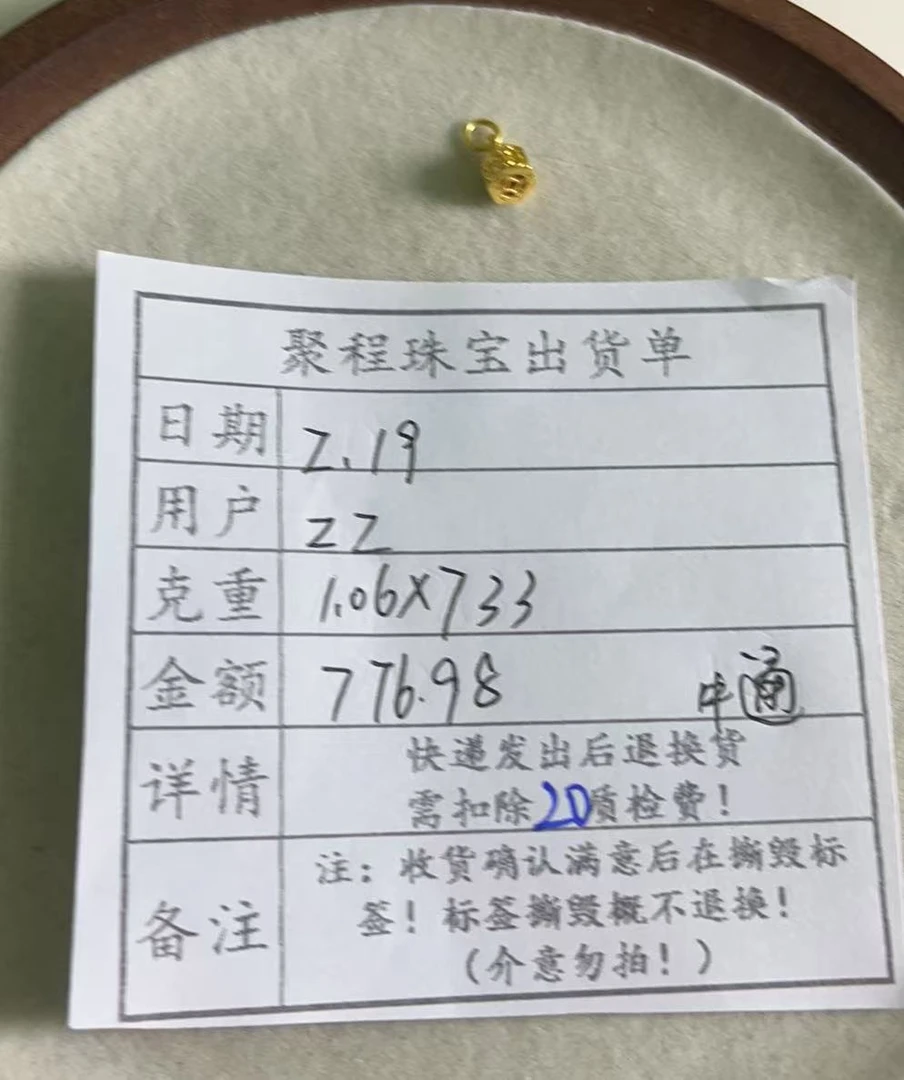 聚程珠宝出货单
日期 2.19
用户 ZZ
克重 1.06×733
金额 776.98 中通
详情 快递发出后退换货
需扣除20质检费！
备注 注：收货确认满意后在撕毁标
签！标签撕毁概不退换！
（介意勿拍！）